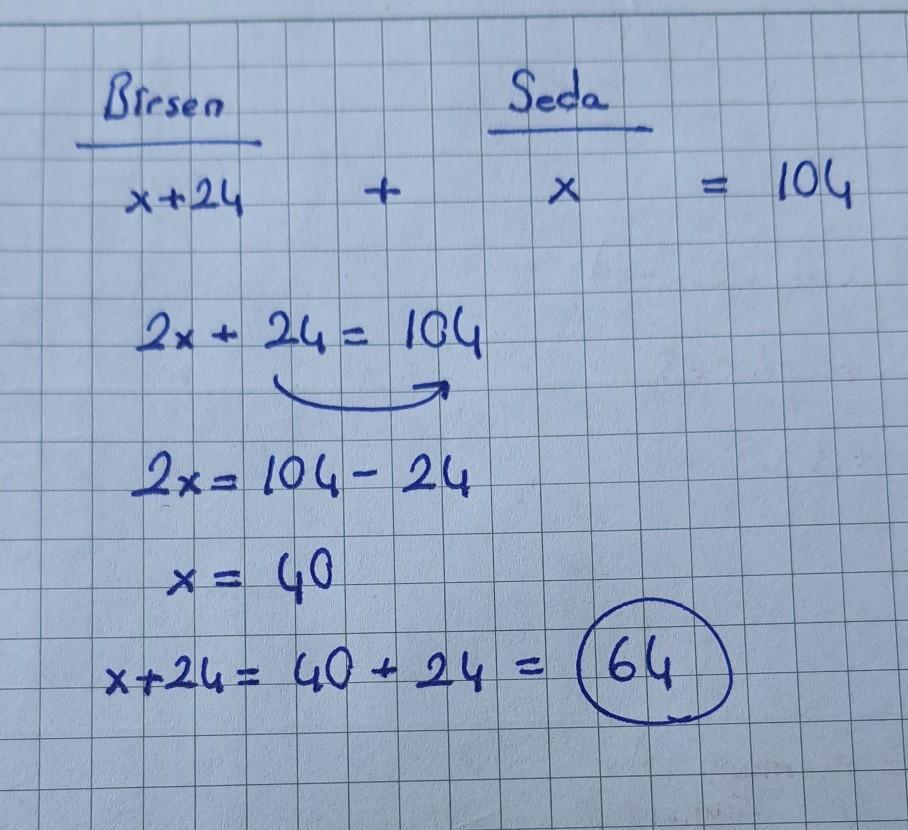 Birsen Seda
x+24 + x = 104
2x + 24 = 104
2x = 104 - 24
x = 40
x+24 = 40 + 24 = 64